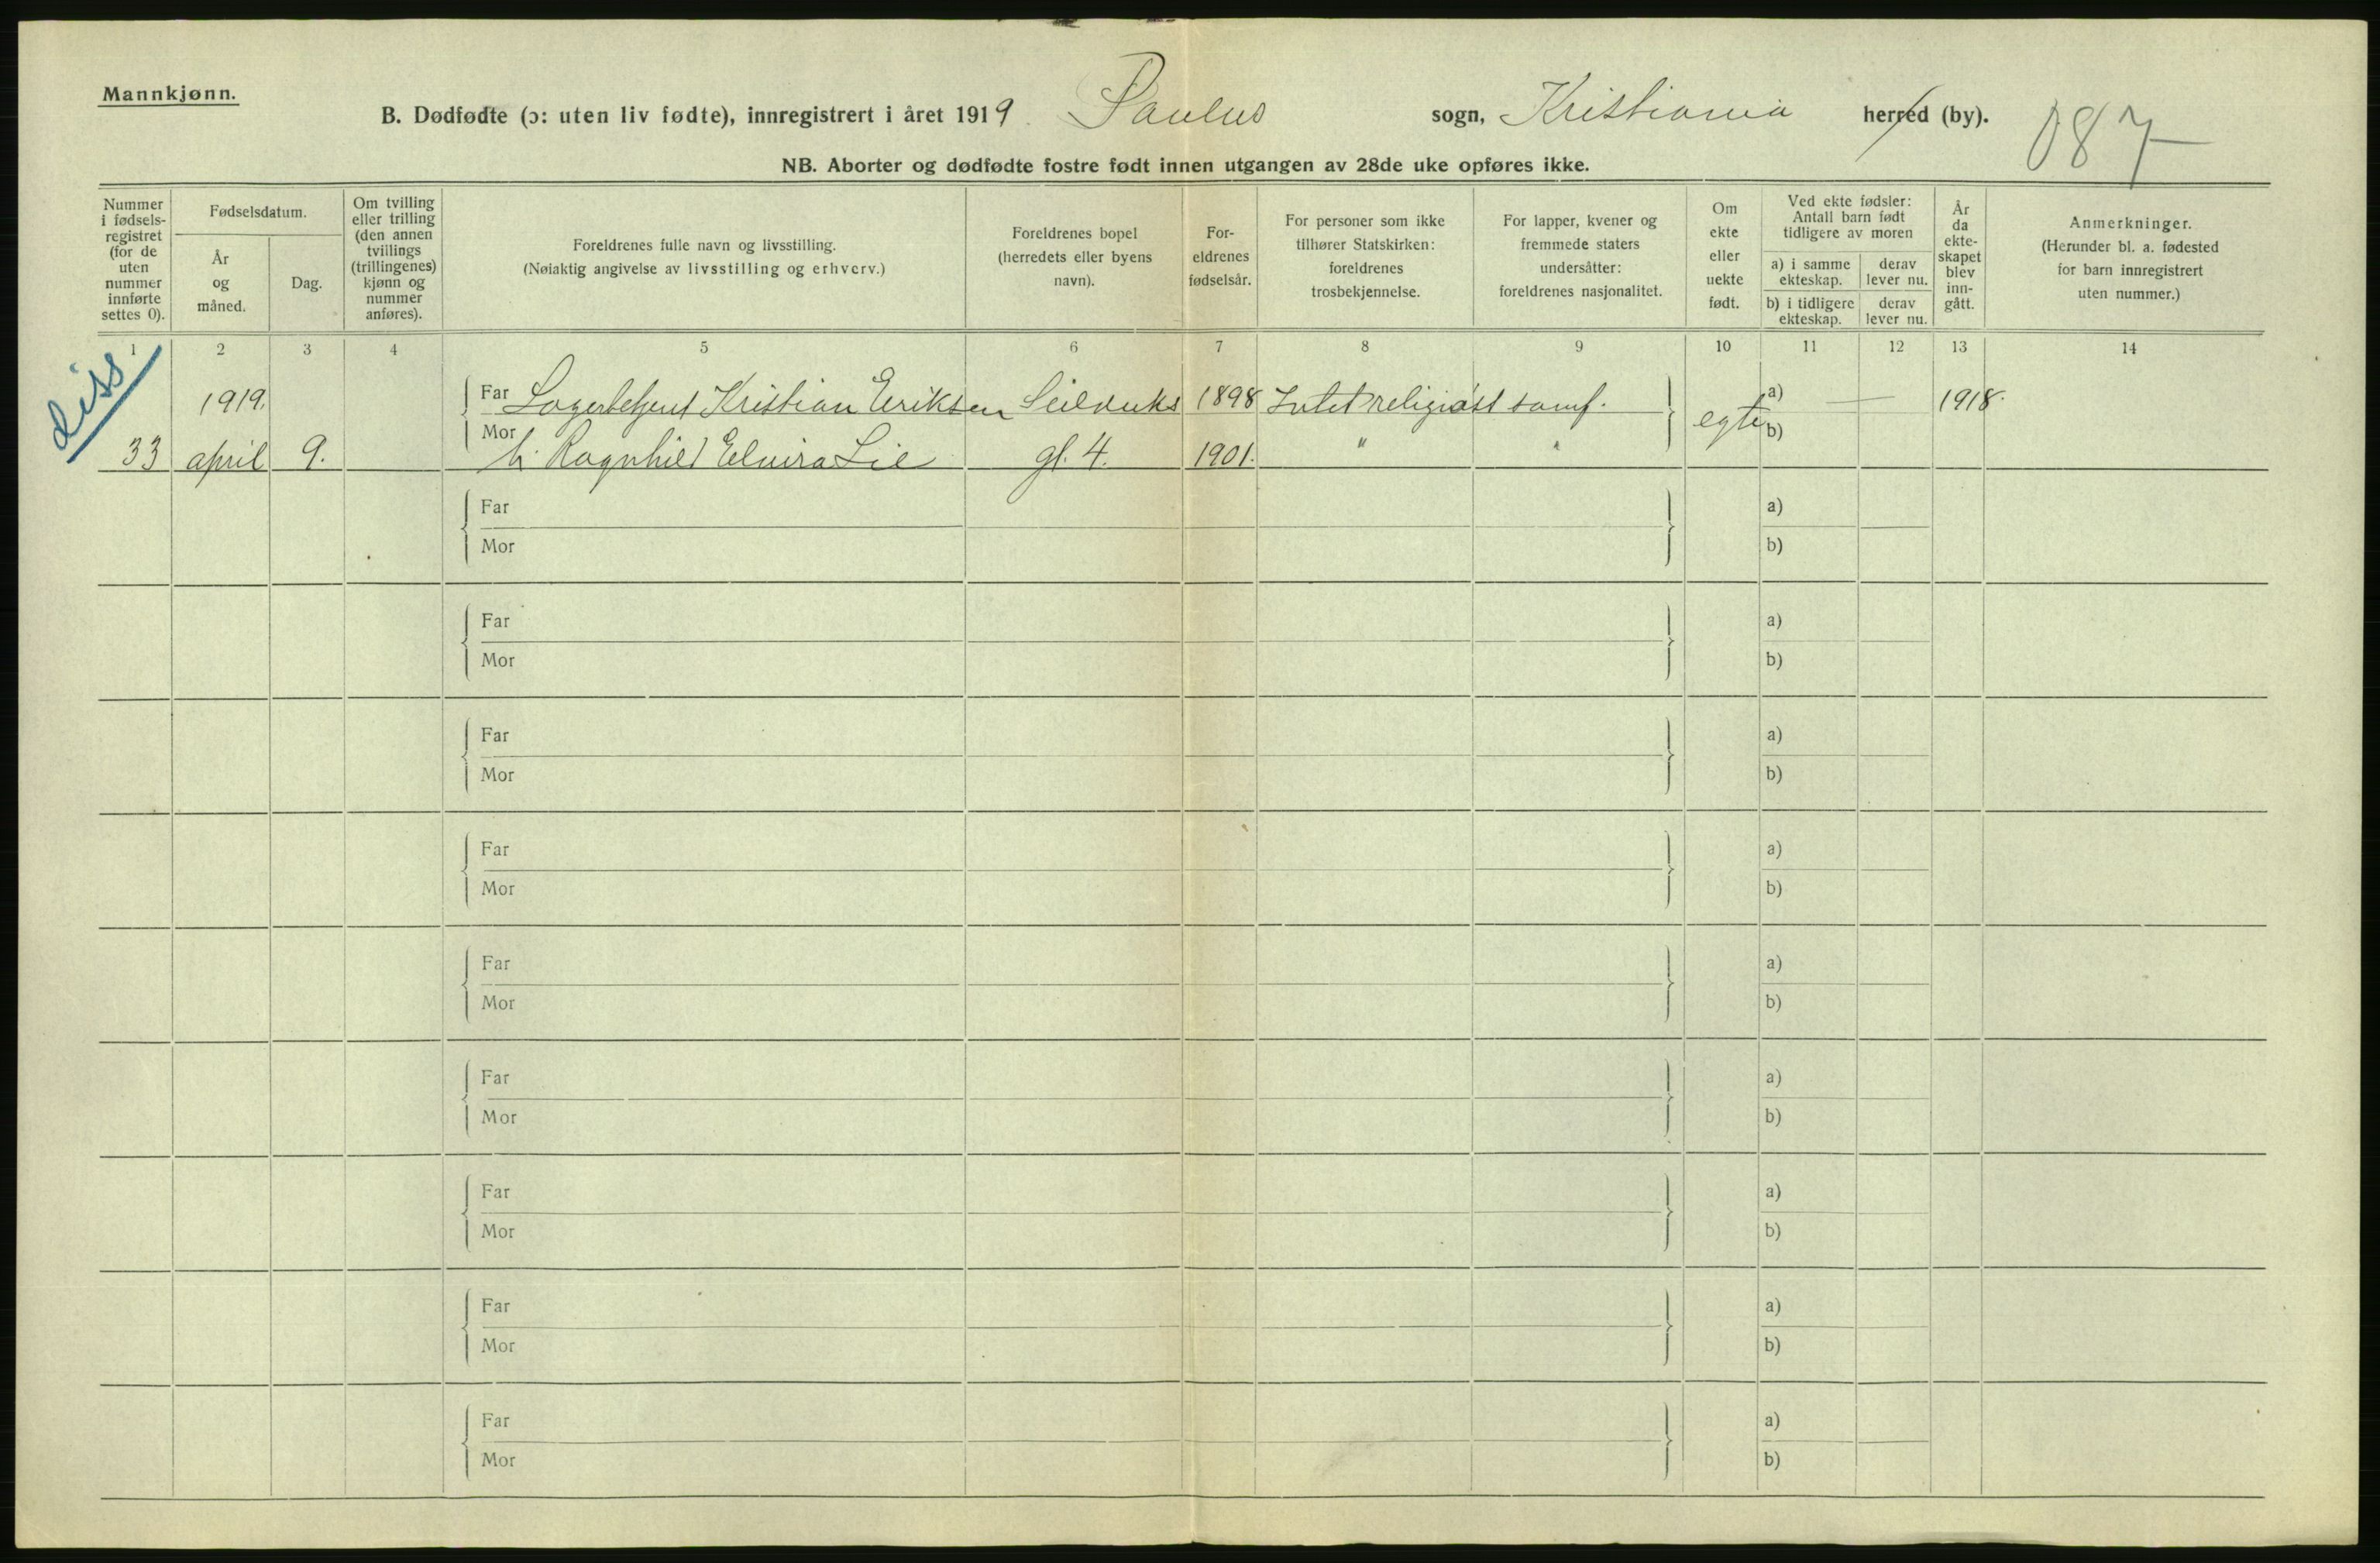 Mannkjønn.
B. Dødfødte (ɔ: uten liv fødte), innregistrert i året 1919. Paulus sogn, Kristiania herred (by).
087
NB. Aborter og dødfødte fostre født innen utgangen av 28de uke opføres ikke.
Nummer i fødsels-registret (for de uten nummer innførte settes 0).
Fødselsdatum.
År og måned.
Dag.
Om tvilling eller trilling (den annen tvillings (trillingenes) kjønn og nummer anføres).
Foreldrenes fulle navn og livsstilling.
(Nøiaktig angivelse av livsstilling og erhverv.)
Foreldrenes bopel (herredets eller byens navn).
For-eldrenes fødselsår.
For personer som ikke tilhører Statskirken: foreldrenes trosbekjennelse.
For lapper, kvener og fremmede staters undersåtter: foreldrenes nasjonalitet.
Om ekte eller uekte født.
Ved ekte fødsler: Antall barn født tidligere av moren
a) i samme ekteskap. derav lever nu.
b) i tidligere ekteskap. derav lever nu.
År da ekte-skapet blev inn-gått.
Anmerkninger.
(Herunder bl. a. fødested for barn innregistrert uten nummer.)
1 2 3 4 5 6 7 8 9 10 11 12 13 14
diss
1919. Far Lagerbetjent Kristian Eriksen Seilduks 1898 Intet religiøst samf. egte a) — 1918.
33 april 9. Mor h. Ragnhild Elvira Lie gt. 4. 1901. " " b)
Far a)
Mor b)
Far a)
Mor b)
Far a)
Mor b)
Far a)
Mor b)
Far a)
Mor b)
Far a)
Mor b)
Far a)
Mor b)
Far a)
Mor b)
Far a)
Mor b)